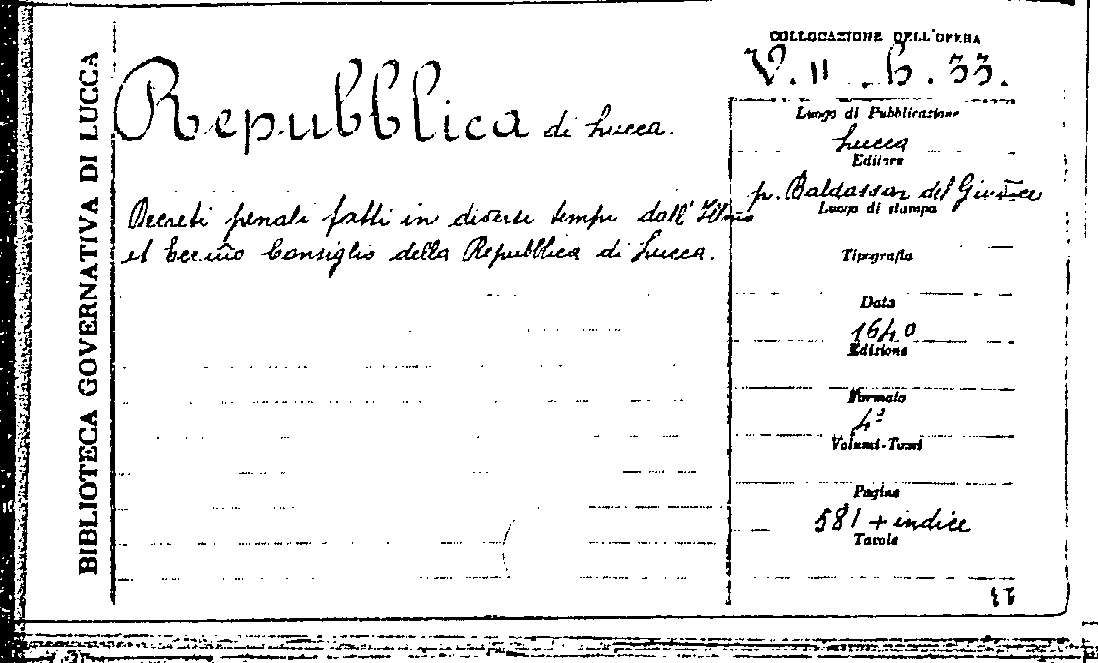 BIBLIOTECA GOVERNATIVA DI LUCCA
Repubblica di Lucca.
Decreti penali fatti in diversi tempi dall'Ill.mo
et Ecc.mo Consiglio della Repubblica di Lucca.
COLLOCAZIONE DELL'OPERA
V. II . b. 33.
Luogo di Pubblicazione
Lucca
Editore
p. Baldassar del Giudice
Luogo di stampa
Tipografia
Data
1640
Edizione
Formato
4°
Volumi-Tomi
Pagine
581 + indice
Tavole